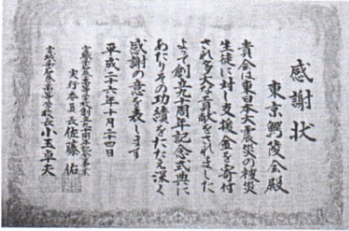 感謝状
東京鸛陵会殿
貴会は東日本大震災の被災
生徒に対し支援金を寄付
され多大な貢献をされました
よって創立九十周年記念式典に
あたりその功績をたたえ深く
感謝の意を表します
平成二十六年十月二十四日
実行委員長佐藤佑
高等学校長小玉卓夫